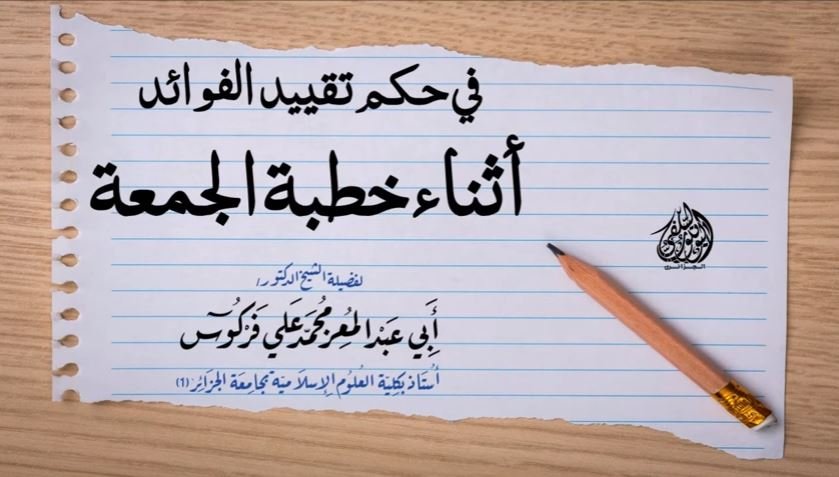 في حكم تقييد الفوائد
أثناء خطبة الجمعة
لفضيلة الشيخ الدكتور/
أَبِي عَبْدِ المُعِزِّ مُحَمَّد عَلِي فَرْكُوس
أُسْتَاذ بِكُلِيَّة العُلُوم الإِسلَامِيَّة بِجَامِعَة الجَزَائِر (1)
الجزائري